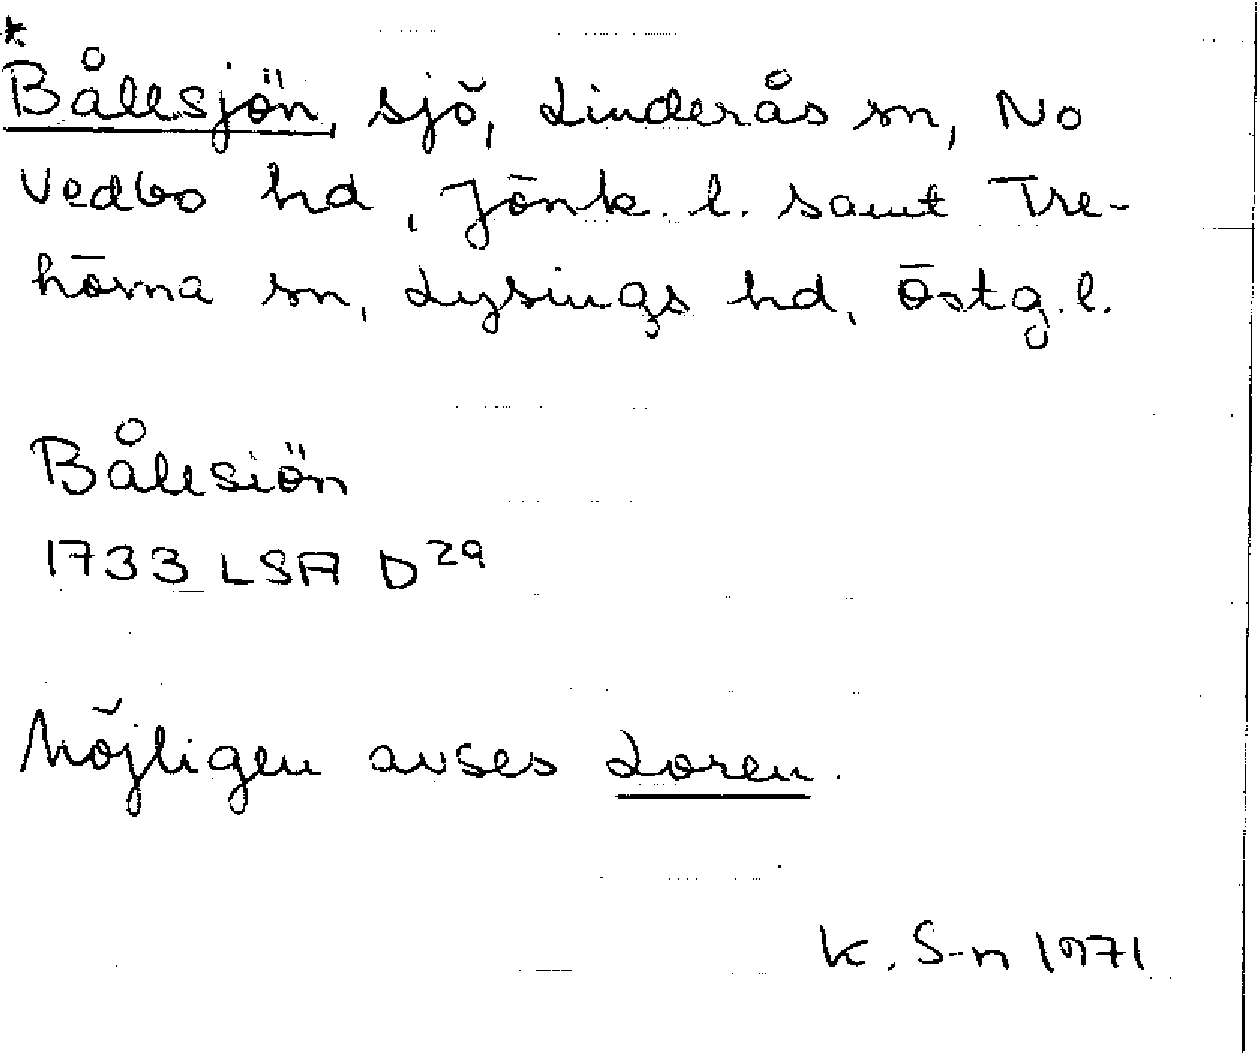 *
Bållsjön, sjö, Linderås sn, No
Vedbo hd, Jönk. l. samt Tre-
hörna sn, Lysings hd, Östg. l.
Bållsiön
1733 LSA D29
Möjligen avses Loren.
K. S-n 1971